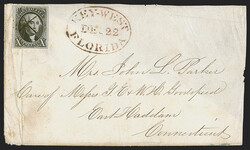 KEY-WEST
DEC 22
FLORIDA
Mrs John L. Parker
Care of Messrs T. E. & W. H. Goodspeed
East Haddam
Connecticut